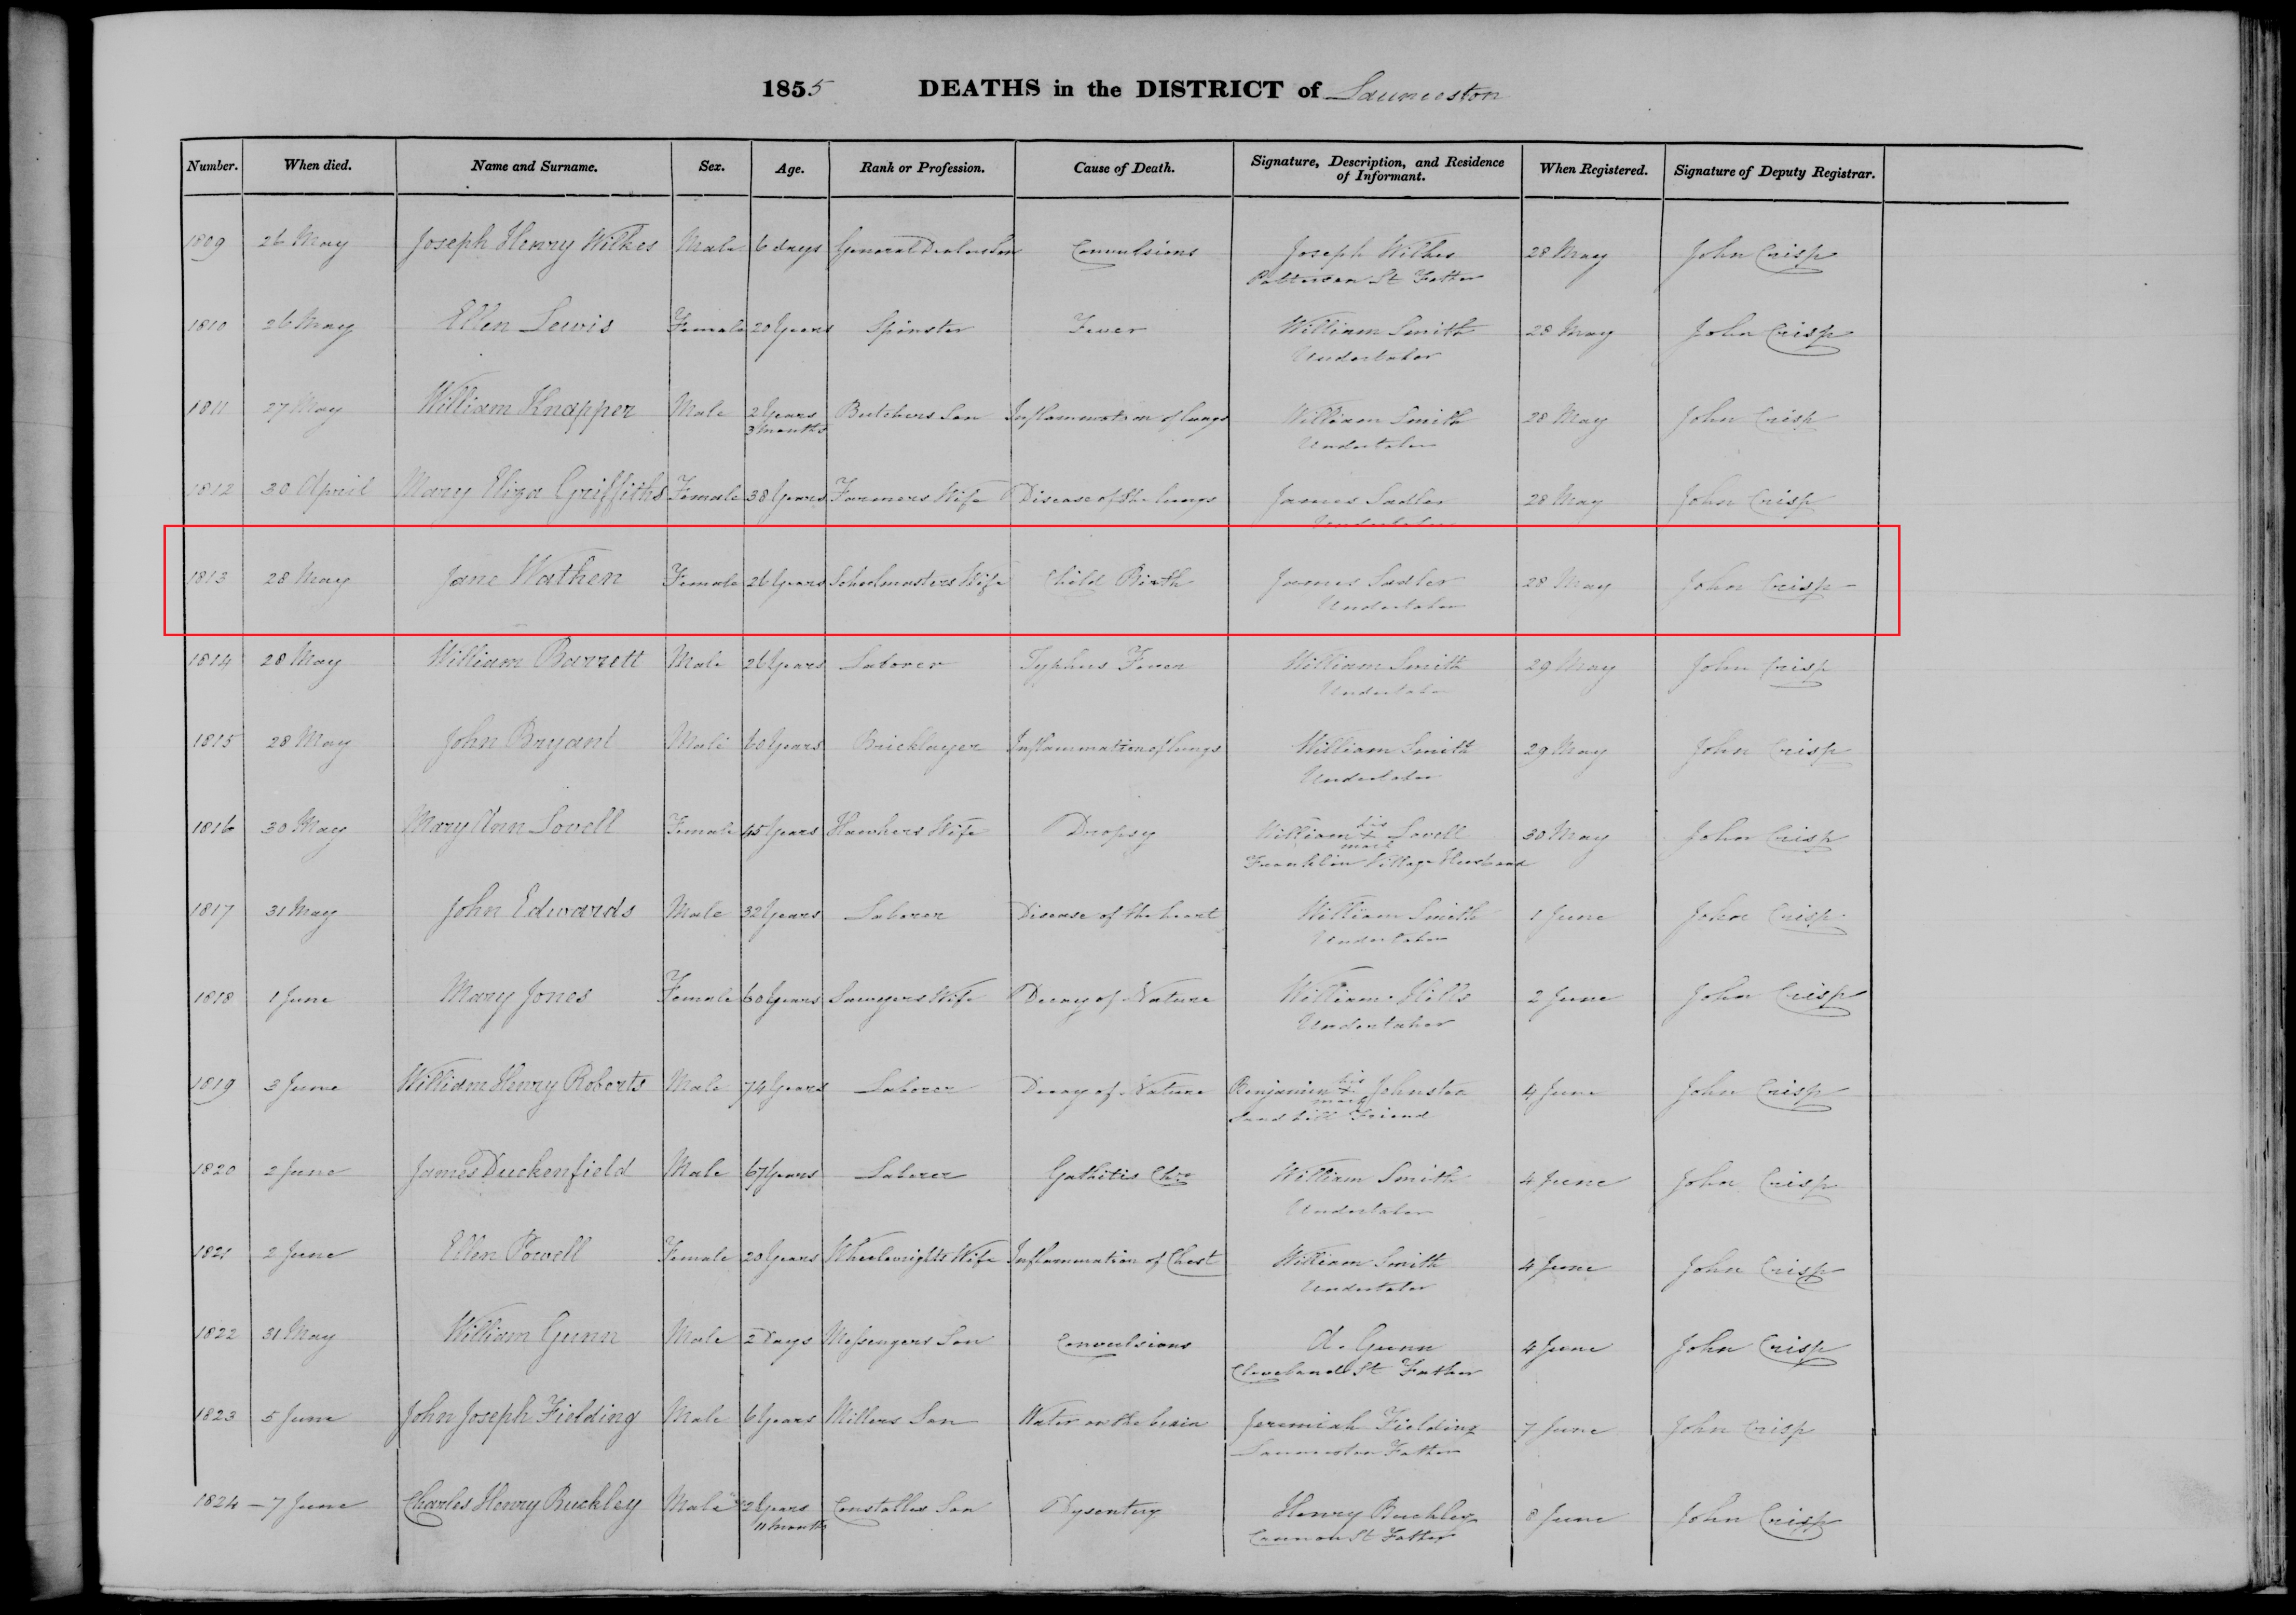 1855 DEATHS in the DISTRICT of Launceston
Number. When died. Name and Surname. Sex. Age. Rank or Profession. Cause of Death. Signature, Description, and Residence of Informant. When Registered. Signature of Deputy Registrar.
1809 26 May Joseph Henry Wilkes Male 6 days General Dealers Son Convulsions Joseph Wilkes 28 May John Crisp
Patterson St Father
1810 26 May Ellen Lewis Female 20 Years Spinster Fever William Smith 28 May John Crisp
Undertaker
1811 27 May William Knapper Male 2 Years Butchers Son Inflammation of lungs William Smith 28 May John Crisp
3 months Undertaker
1812 30 April Mary Eliza Griffiths Female 38 Years Farmers Wife Disease of the lungs James Sadler 28 May John Crisp
Undertaker
1813 28 May Jane Wathen Female 26 Years Schoolmasters Wife Child Birth James Sadler 28 May John Crisp
Undertaker
1814 28 May William Barrett Male 26 Years Laborer Typhus Fever William Smith 29 May John Crisp
Undertaker
1815 28 May John Bryant Male 60 Years Bricklayer Inflammation of lungs William Smith 29 May John Crisp
Undertaker
1816 30 May Mary Ann Lovell Female 45 Years Hawkers Wife Dropsy William his x mark Lovell 30 May John Crisp
Franklin Village Husband
1817 31 May John Edwards Male 32 Years Laborer Disease of the heart William Smith 1 June John Crisp
Undertaker
1818 1 June Mary Jones Female 60 Years Sawyers Wife Decay of Nature William Hills 2 June John Crisp
Undertaker
1819 3 June William Henry Roberts Male 74 Years Laborer Decay of Nature Benjamin his x mark Johnston 4 June John Crisp
Sand hill Friend
1820 2 June James Duckenfield Male 67 Years Laborer William Smith 4 June John Crisp
Undertaker
1821 2 June Ellen Powell Female 20 Years Wheelwrights Wife Inflammation of Chest William Smith 4 June John Crisp
Undertaker
1822 31 May William Gunn Male 2 Days Messengers Son Convulsions A. Gunn 4 June John Crisp
Cleveland St Father
1823 5 June John Joseph Fielding Male 6 Years Millers Son Water on the brain Jeremiah Fielding 7 June John Crisp
Launceston Father
1824 – 7 June Charles Henry Buckley Male 2 Years Constables Son Dysentery Henry Buckley 8 June John Crisp
11 months Cannon St Father